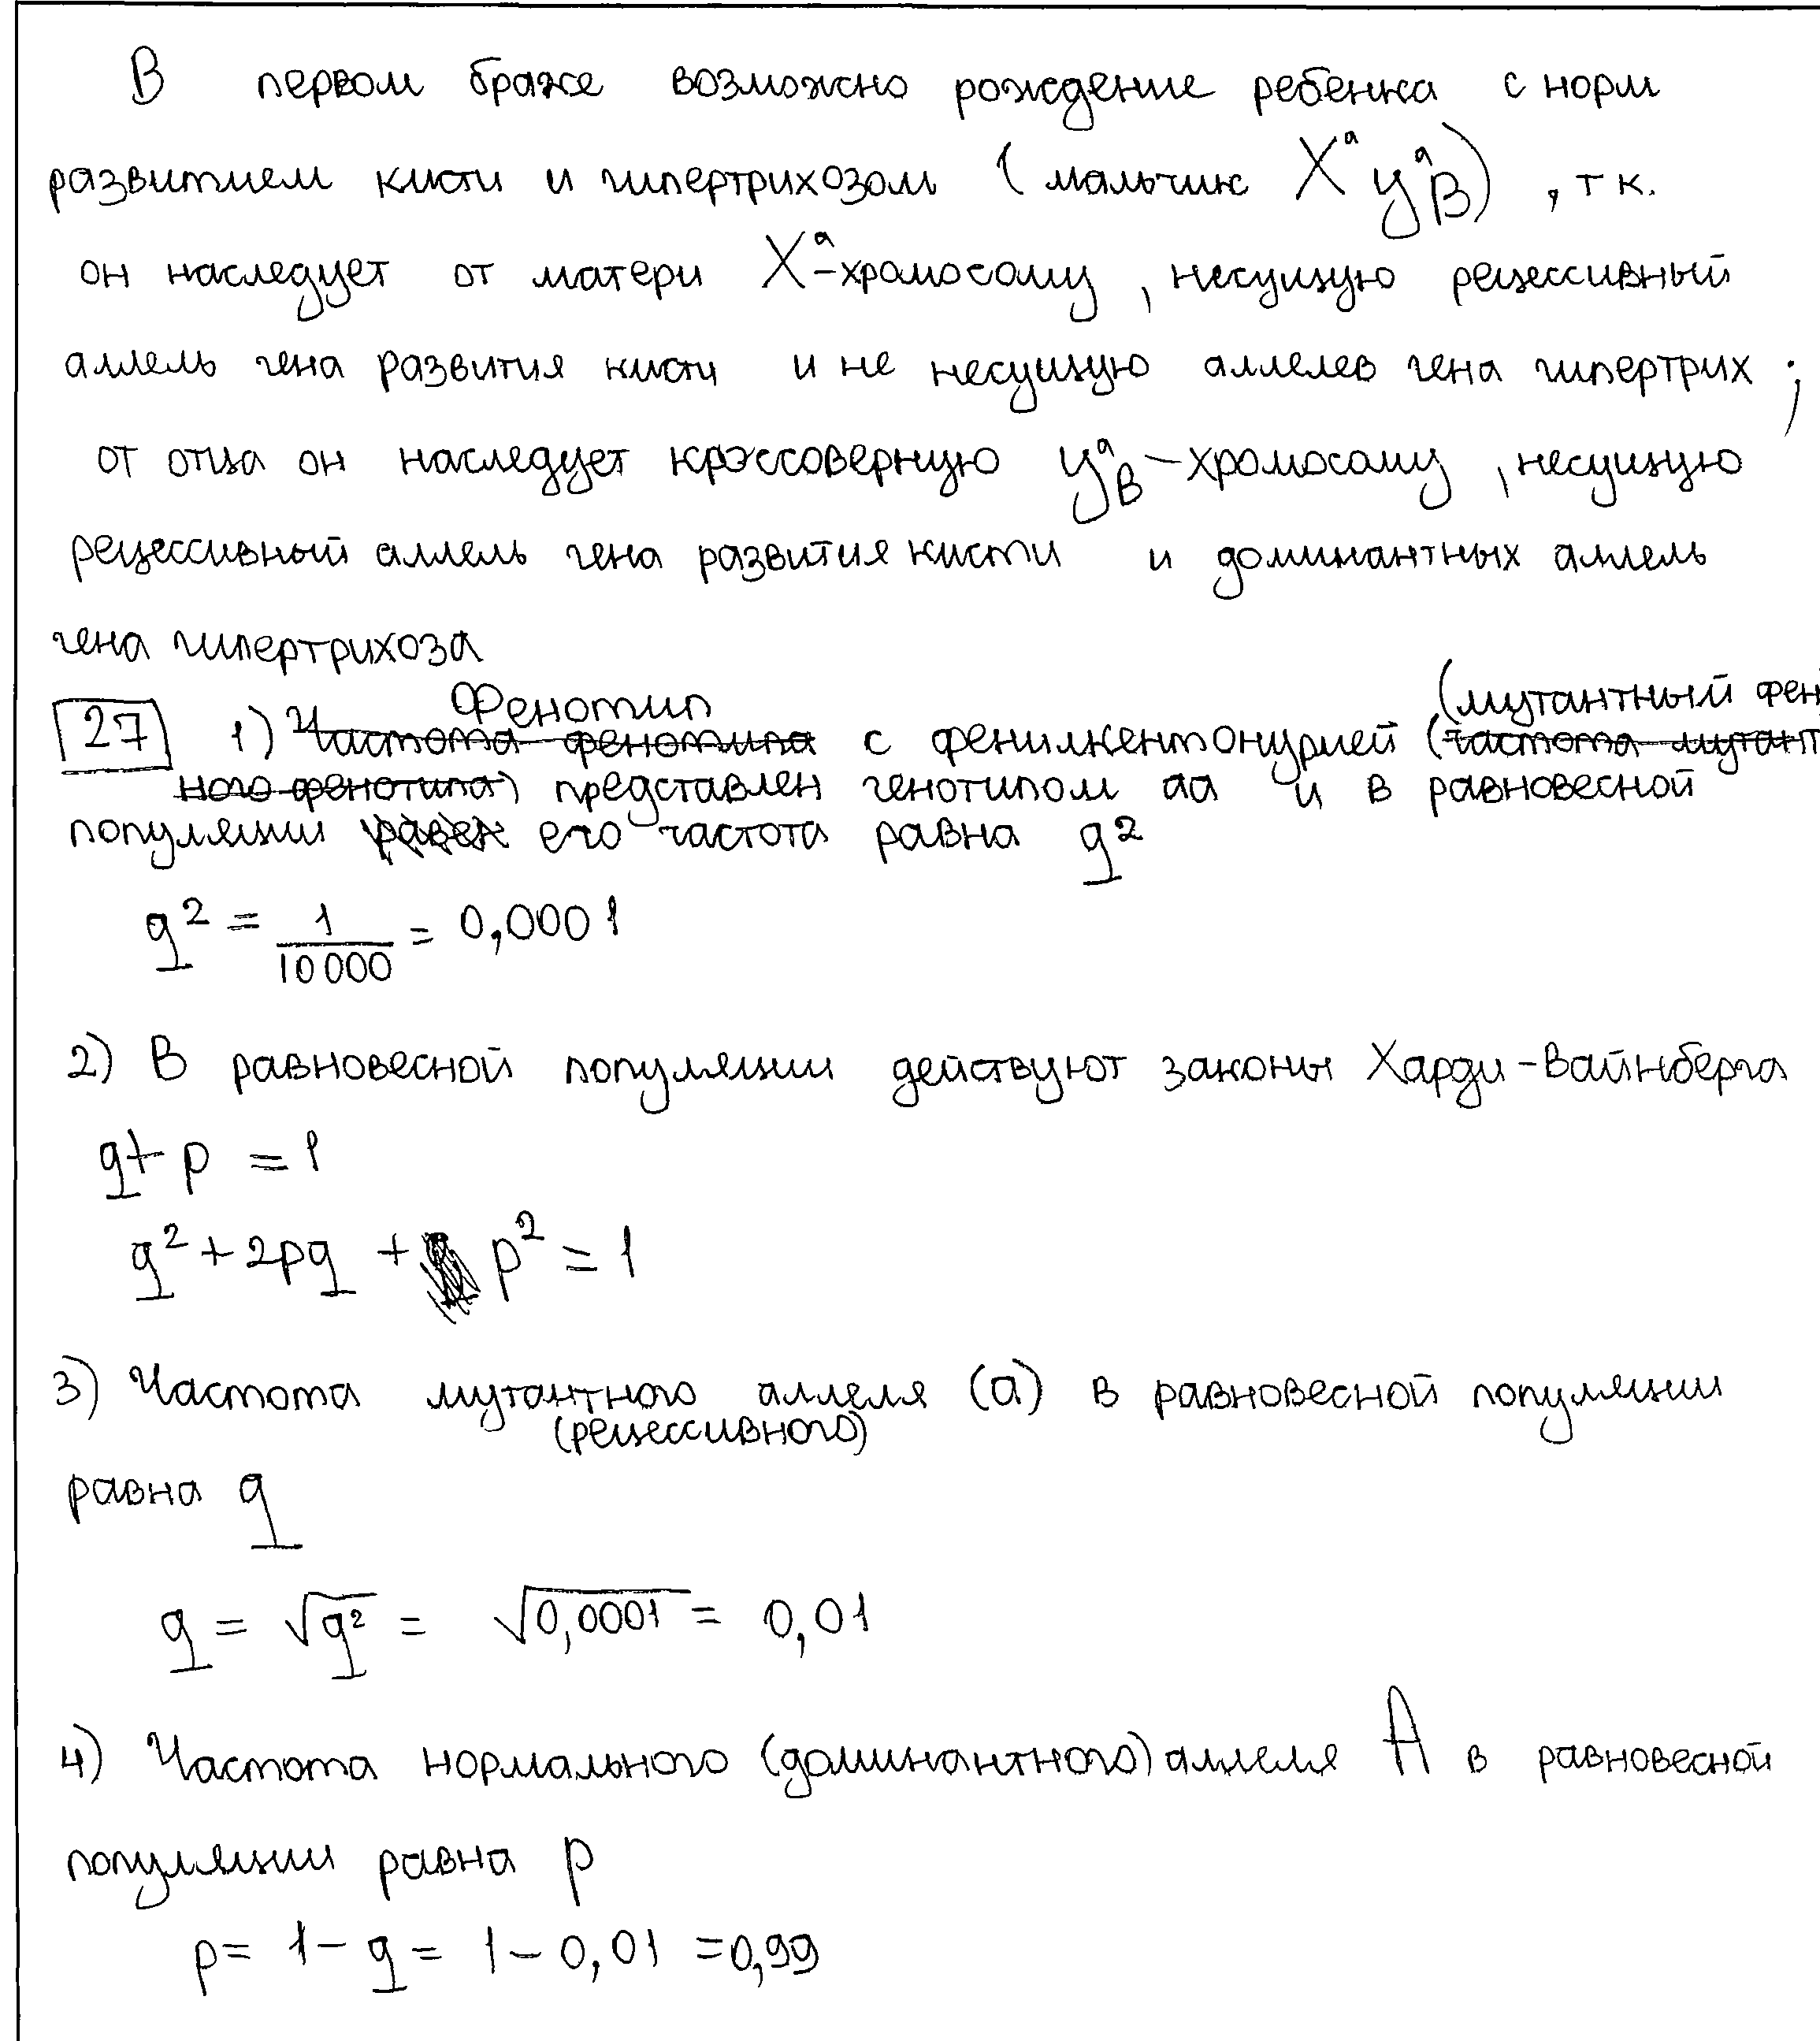 В первом браке возможно рождение ребенка с норм
развитием кисти и гипертрихозом (мальчик XᵃYᵃB), т к.
он наследует от матери Xᵃ-хромосому, несущую рецессивный
аллель гена развития кисти и не несущую аллелев гена гипертрих;
от отца он наследует крэссоверную YᵃB-хромосому, несущую
рецессивный аллель гена развития кисти и доминантных аллель
гена гипертрихоза
Фенотип (мутантный фен
27 1) Частота фенотипа с фенилкентонурией (частота мутант
ного фенотипа) представлен генотипом аа и в равновесной
популяции равен его частота равна q²
q² = 1/10000 = 0,0001
2) В равновесной популяции действуют законы Харди-Вайнберга
q+p = 1
q² + 2pq + p² = 1
3) Частота мутантного аллеля (а) в равновесной популяции
(рецессивного)
равна q
q = √q² = √0,0001 = 0,01
4) Частота нормального (доминантного) аллеля А в равновесной
популяции равна p
p = 1 - q = 1 - 0,01 = 0,99